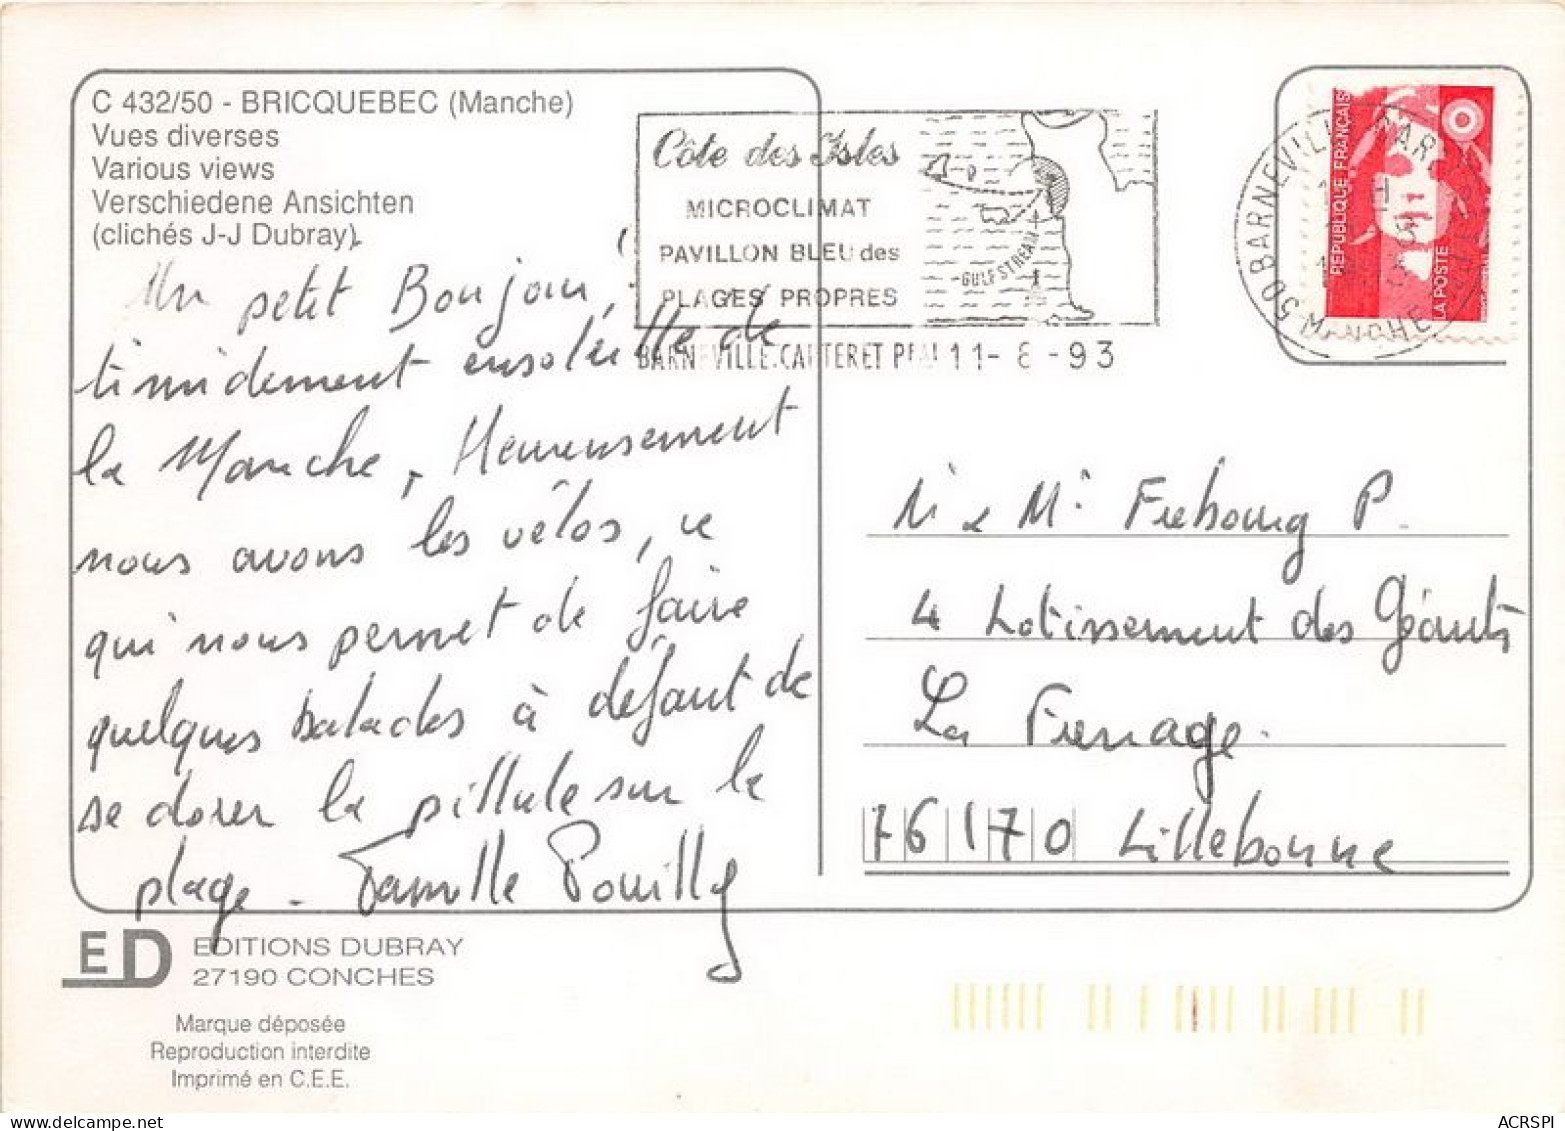 C 432/50 - BRICQUEBEC (Manche)
Vues diverses
Various views
Verschiedene Ansichten
(clichés J-J Dubray).
Un petit Bonjour,
timidement ensoleillé de
la Manche. Heureusement
nous avons les vélos, ce
qui nous permet de faire
quelques balades à défaut de
se dorer la pillule sur la
plage. Famille Pouilly
Côte des Isles
MICROCLIMAT
PAVILLON BLEU des
PLAGES PROPRES
GULFSTREAM
BARNEVILLE.CARTERET PPAL 11-8-93
50 BARNEVILLE CARTERET
MANCHE
REPUBLIQUE FRANÇAISE
LA POSTE
Mr & Me Frebourg P.
4 Lotissement des Géants
La Frenage.
76170 Lillebonne
ED
EDITIONS DUBRAY
27190 CONCHES
Marque déposée
Reproduction interdite
Imprimé en C.E.E.
www.delcampe.net
ACRSPI